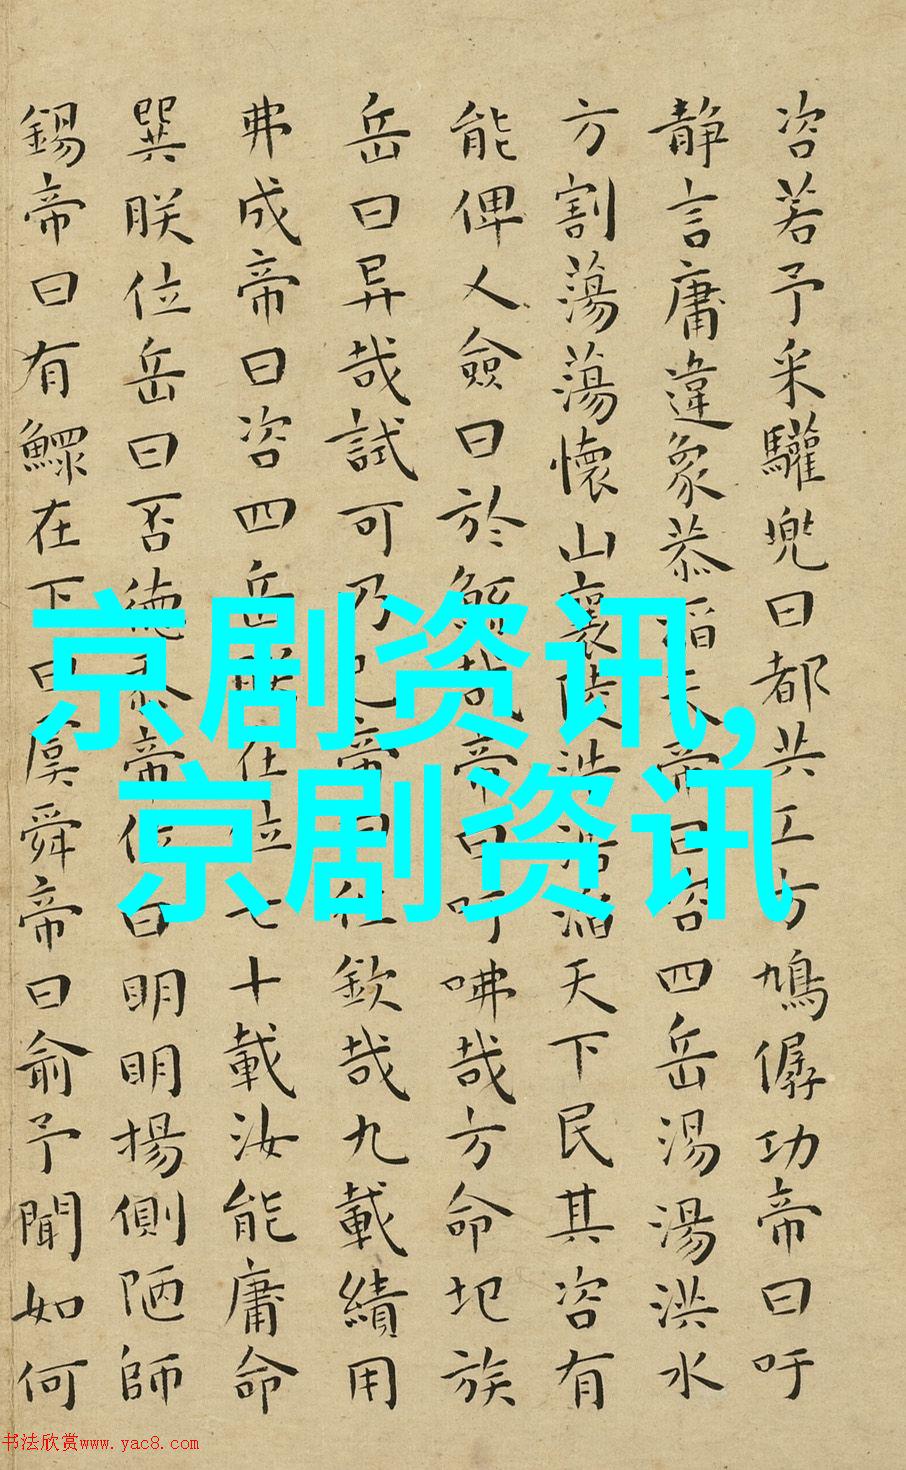 咨若予采驩兜曰都共工方鳩僝功帝曰吁
静言庸違象恭滔天帝曰咨四岳湯湯洪水
方割蕩蕩懷山襄陵浩浩滔天下民其咨有
能俾乂僉曰於鯀哉帝曰吁咈哉方命圮族
岳曰异哉試可乃已帝曰往欽哉九載績用
弗成帝曰咨四岳朕在位七十載汝能庸命
巽朕位岳曰否德忝帝位曰明明揚側陋師
錫帝曰有鰥在下曰虞舜帝曰俞予聞如何
京剧资讯,
京剧资讯
书法欣赏www.yac8.com